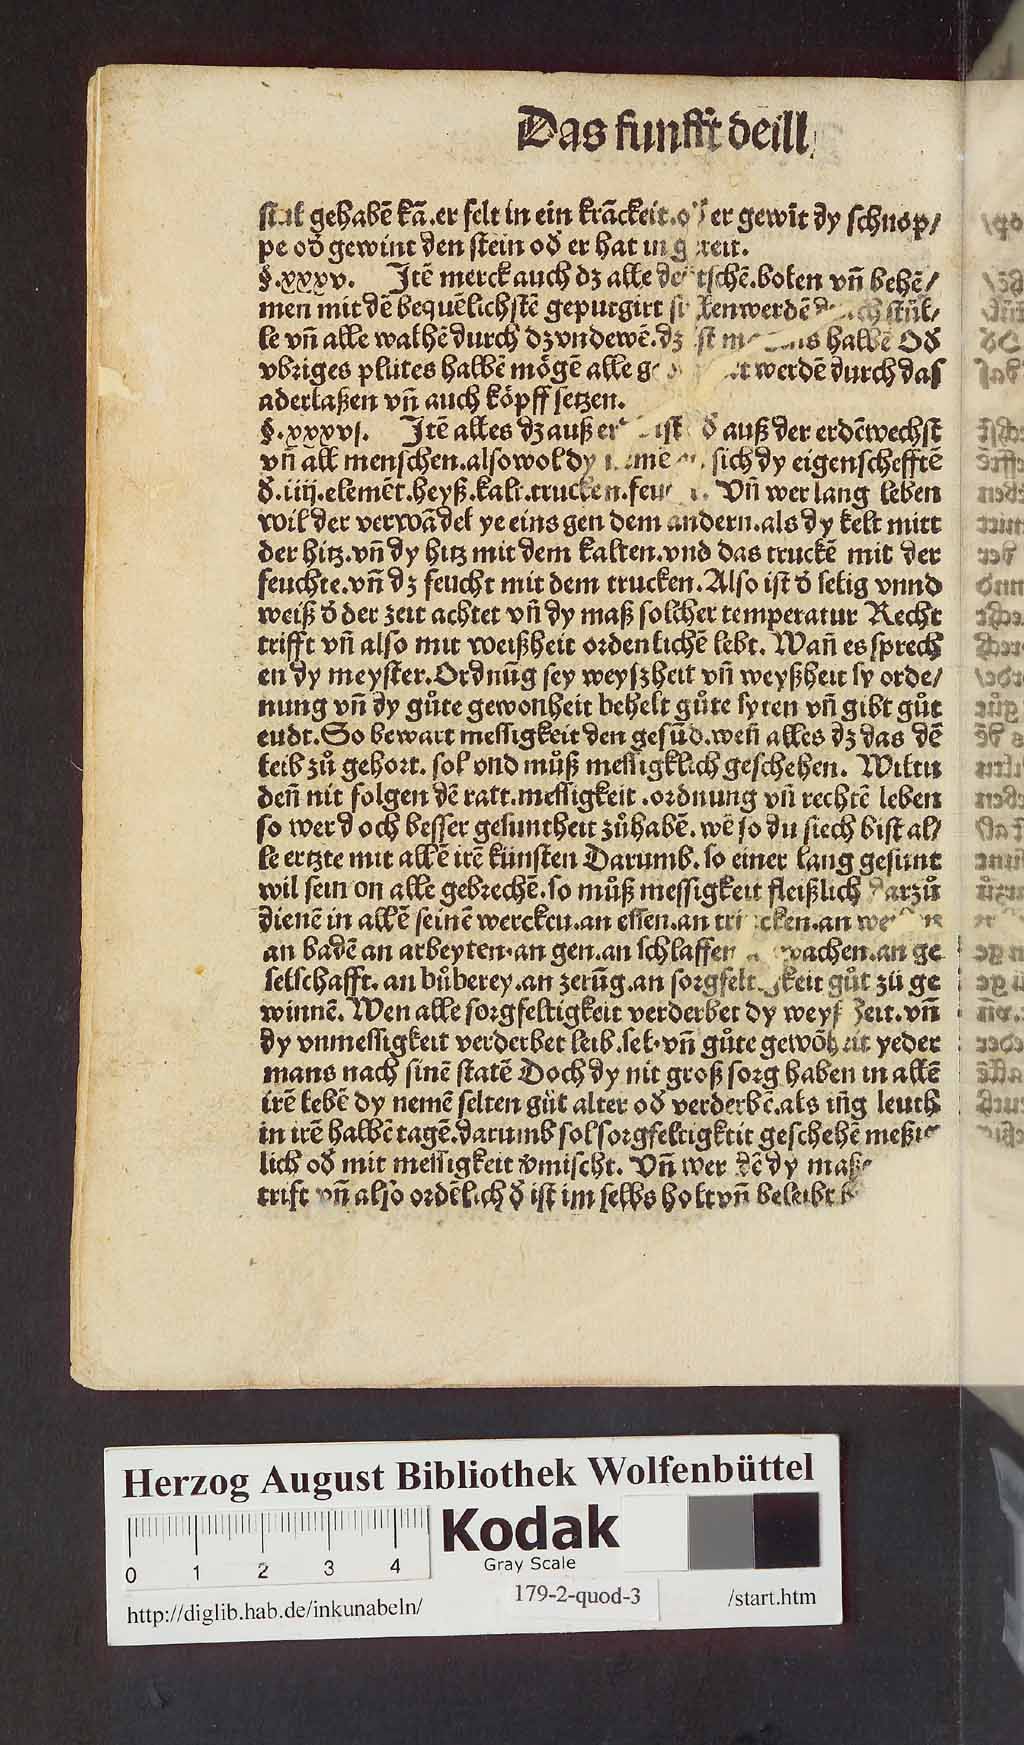 Das funfft deill
gehabē kā.er felt in ein krāckeit. er gewīt dy schnop/
pe od̄ gewint den stein od̄ er hat
§.xxxv. Jtē merck auch dz alle boten vn̄ behē/
men mit dē bequēlichstē gepurgirt werdē stůl/
le vn̄ alle walhē durch dz vndewē.dz ist halbē Od̄
vbriges plůtes halbē mögē alle werdē durch das
aderlaßen vn̄ auch köpff setzen.
§.xxxvj. Jtē alles dz auß auß der erdē wechst
vn̄ all menschen.alsowol dy sich dy eigenschefftē
d̄.iiij.elemēt.heyß.kalt.trucken. Vn̄ wer lang leben
wil der verwādel ye eins gen dem andern.als dy kelt mitt
der hitz.vn̄ dy hitz mit dem kalten.vnd das truckē mit der
feuchte.vn̄ dz feucht mit dem trucken.Also ist d̄ selig vnnd
weiß d̄ der zeit achtet vn̄ dy maß solcher temperatur Recht
trifft vn̄ also mit weißheit ordenlichē lebt. Wan̄ es sprech
en dy meyster.Ordnūg sey weyszheit vn̄ weyßheit sy orde/
nung vn̄ dy gůte gewonheit behelt gůte syten vn̄ gibt gůt
eudt.So bewart messigkeit den gesūd.wen̄ alles dz das dē
leib zů gehort. sol vnd můß messigklich geschehen. Wiltu
den̄ nit folgen dē ratt.messigkeit .ordnung vn̄ rechtē leben
so werd och besser gesuntheit zůhabē.wē so du siech bist al/
le ertzte mit allē irē künsten Darumb.so einer lang gesunt
wil sein on alle gebrechē.so můß messigkeit fleißlich darzů
dienē in allē seinē wercken.an essen.an trincken.an
an badē an arbeyten.an gen.an schlaffen wachen.an ge
selschafft.an bůberey.an zerūg.an sorgfeltigkeit gůt zů ge
winnē.Wen alle sorgfeltigkeit verderbet dy weyszheit.vn̄
dy vnmessigkeit verderbet leib.sel.vn̄ gůte gewōheit yeder
mans nach sinē statē Doch dy nit groß sorg haben in allē
irē lebē dy nemē selten gůt alter od̄ verderbē.als in̄g leuth
in irē halbē tagē.darumb sol sorgfeltigktit geschehē meßig
lich od̄ mit messigkeit v̄mischt. Vn̄ wer dē dy maß
trift vn̄ also ordēlich d̄ ist im selbs holt vn̄ beleibt
Herzog August Bibliothek Wolfenbüttel
0 1 2 3 4
Kodak
Gray Scale
http://diglib.hab.de/inkunabeln/ 179-2-quod-3 /start.htm